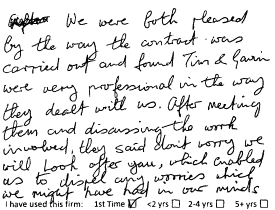 We were both pleased
by the way the contract was
carried out and found Tim & Gavin
were very professional in the way
they dealt with us. After meeting
them and discussing the work
involved, they said don't worry we
will look after you, which enabled
us to dispel any worries which
we might have had in our minds
I have used this firm: 1st Time ☑ <2 yrs ☐ 2-4 yrs ☐ 5+ yrs ☐